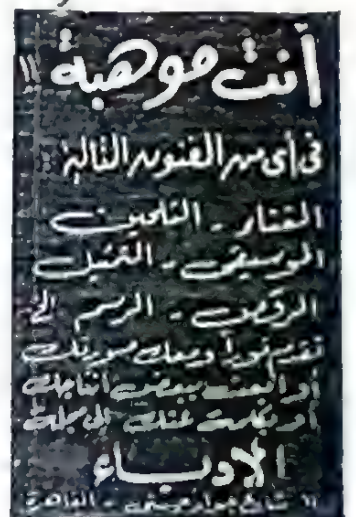 أنت موهبة !!
فى أى من الفنون التالية
الغناء - التلحين
الموسيقى - التمثيل
الرقص - الرسم الخ
تقدم فوراً ومعك صورتك
أو ابعث ببعض انتاجك
أو بكلمة عنك إلى مجلة
الأدباء
١١ شارع جواد حسنى - القاهرة